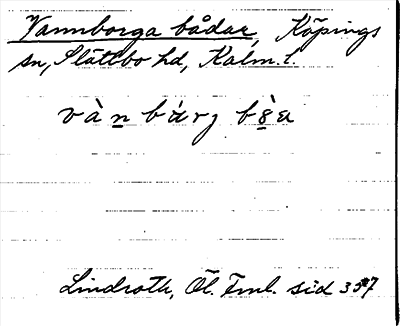 Vannborga bådar, Köpings
sn, Slättbo hd, Kalm. l.
vàn bárg
Lindroth, Öl. Fml. sid